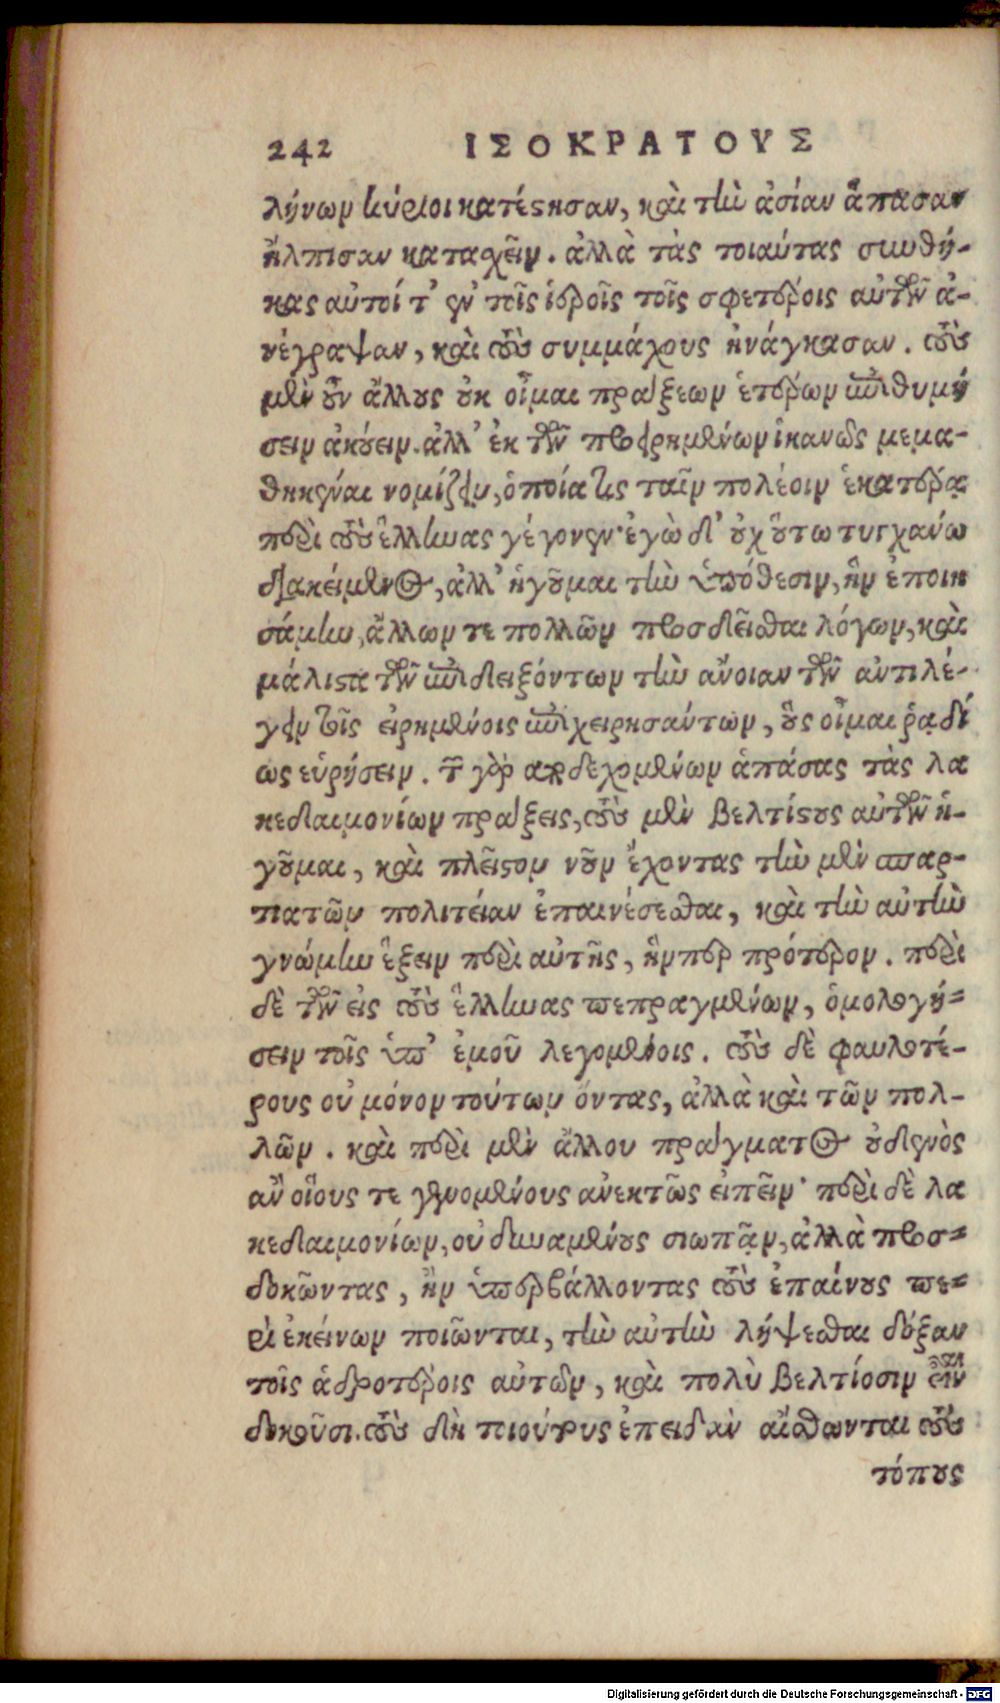 242 ΙΣΟΚΡΑΤΟΥΣ
λήνων κύριοι κατέστησαν, καὶ τὴν ἀσίαν ἅπασαν
ἤλπισαν κατασχεῖν. ἀλλὰ τὰς τοιαύτας συνθή-
κας αὐτοί τ' ἐν τοῖς ἱεροῖς τοῖς σφετέροις αὐτῶν ἀ-
νέγραψαν, καὶ τοὺς συμμάχους ἠνάγκασαν. τοὺς
μὲν οὖν ἄλλους οὐκ οἶμαι πράξεων ἑτέρων ἐπιθυμή
σειν ἀκούειν. ἀλλ' ἐκ τῶν προειρημένων ἱκανῶς μεμα-
θηκέναι νομίζειν, ὁποία τις ταῖν πολέοιν ἑκατέρα
περὶ τοὺς ἕλληνας γέγονεν· ἐγὼ δ' οὐχ οὕτω τυγχάνω
διακείμενος, ἀλλ' ἡγοῦμαι τὴν ὑπόθεσιν, ἣν ἐποιη
σάμην, ἄλλων τε πολλῶν προσδεῖσθαι λόγων, καὶ
μάλιστα τῶν ἐπιδειξόντων τὴν ἄνοιαν τῶν ἀντιλέ-
γειν τοῖς εἰρημένοις ἐπιχειρησάντων, οὓς οἶμαι ῥᾳδί
ως εὑρήσειν. τῶν γὰρ ἀποδεχομένων ἁπάσας τὰς λα
κεδαιμονίων πράξεις, τοὺς μὲν βελτίστους αὐτῶν ἡ-
γοῦμαι, καὶ πλεῖστον νοῦν ἔχοντας τὴν μὲν σπαρ-
τιατῶν πολιτείαν ἐπαινέσεσθαι, καὶ τὴν αὐτὴν
γνώμην ἕξειν περὶ αὐτῆς, ἥνπερ πρότερον. περὶ
δὲ τῶν εἰς τοὺς ἕλληνας πεπραγμένων, ὁμολογή-
σειν τοῖς ὑπ' ἐμοῦ λεγομένοις. τοὺς δὲ φαυλοτέ-
ρους οὐ μόνον τούτων ὄντας, ἀλλὰ καὶ τῶν πολ-
λῶν. καὶ περὶ μὲν ἄλλου πράγματος οὐδενὸς
ἂν οἵους τε γενομένους ἀνεκτῶς εἰπεῖν· περὶ δὲ λα
κεδαιμονίων, οὐ δυναμένους σιωπᾷν, ἀλλὰ προσ-
δοκῶντας, ἢν ὑπερβάλλοντας τοὺς ἐπαίνους πε-
ρὶ ἐκείνων ποιῶνται, τὴν αὐτὴν λήψεσθαι δόξαν
τοῖς ἁδροτέροις αὐτῶν, καὶ πολὺ βελτίοσιν εἶναι
δοκοῦσι. τοὺς δὴ τοιούτους ἐπειδὰν αἴσθωνται τοὺς
τόπους
Digitalisierung gefördert durch die Deutsche Forschungsgemeinschaft - DFG